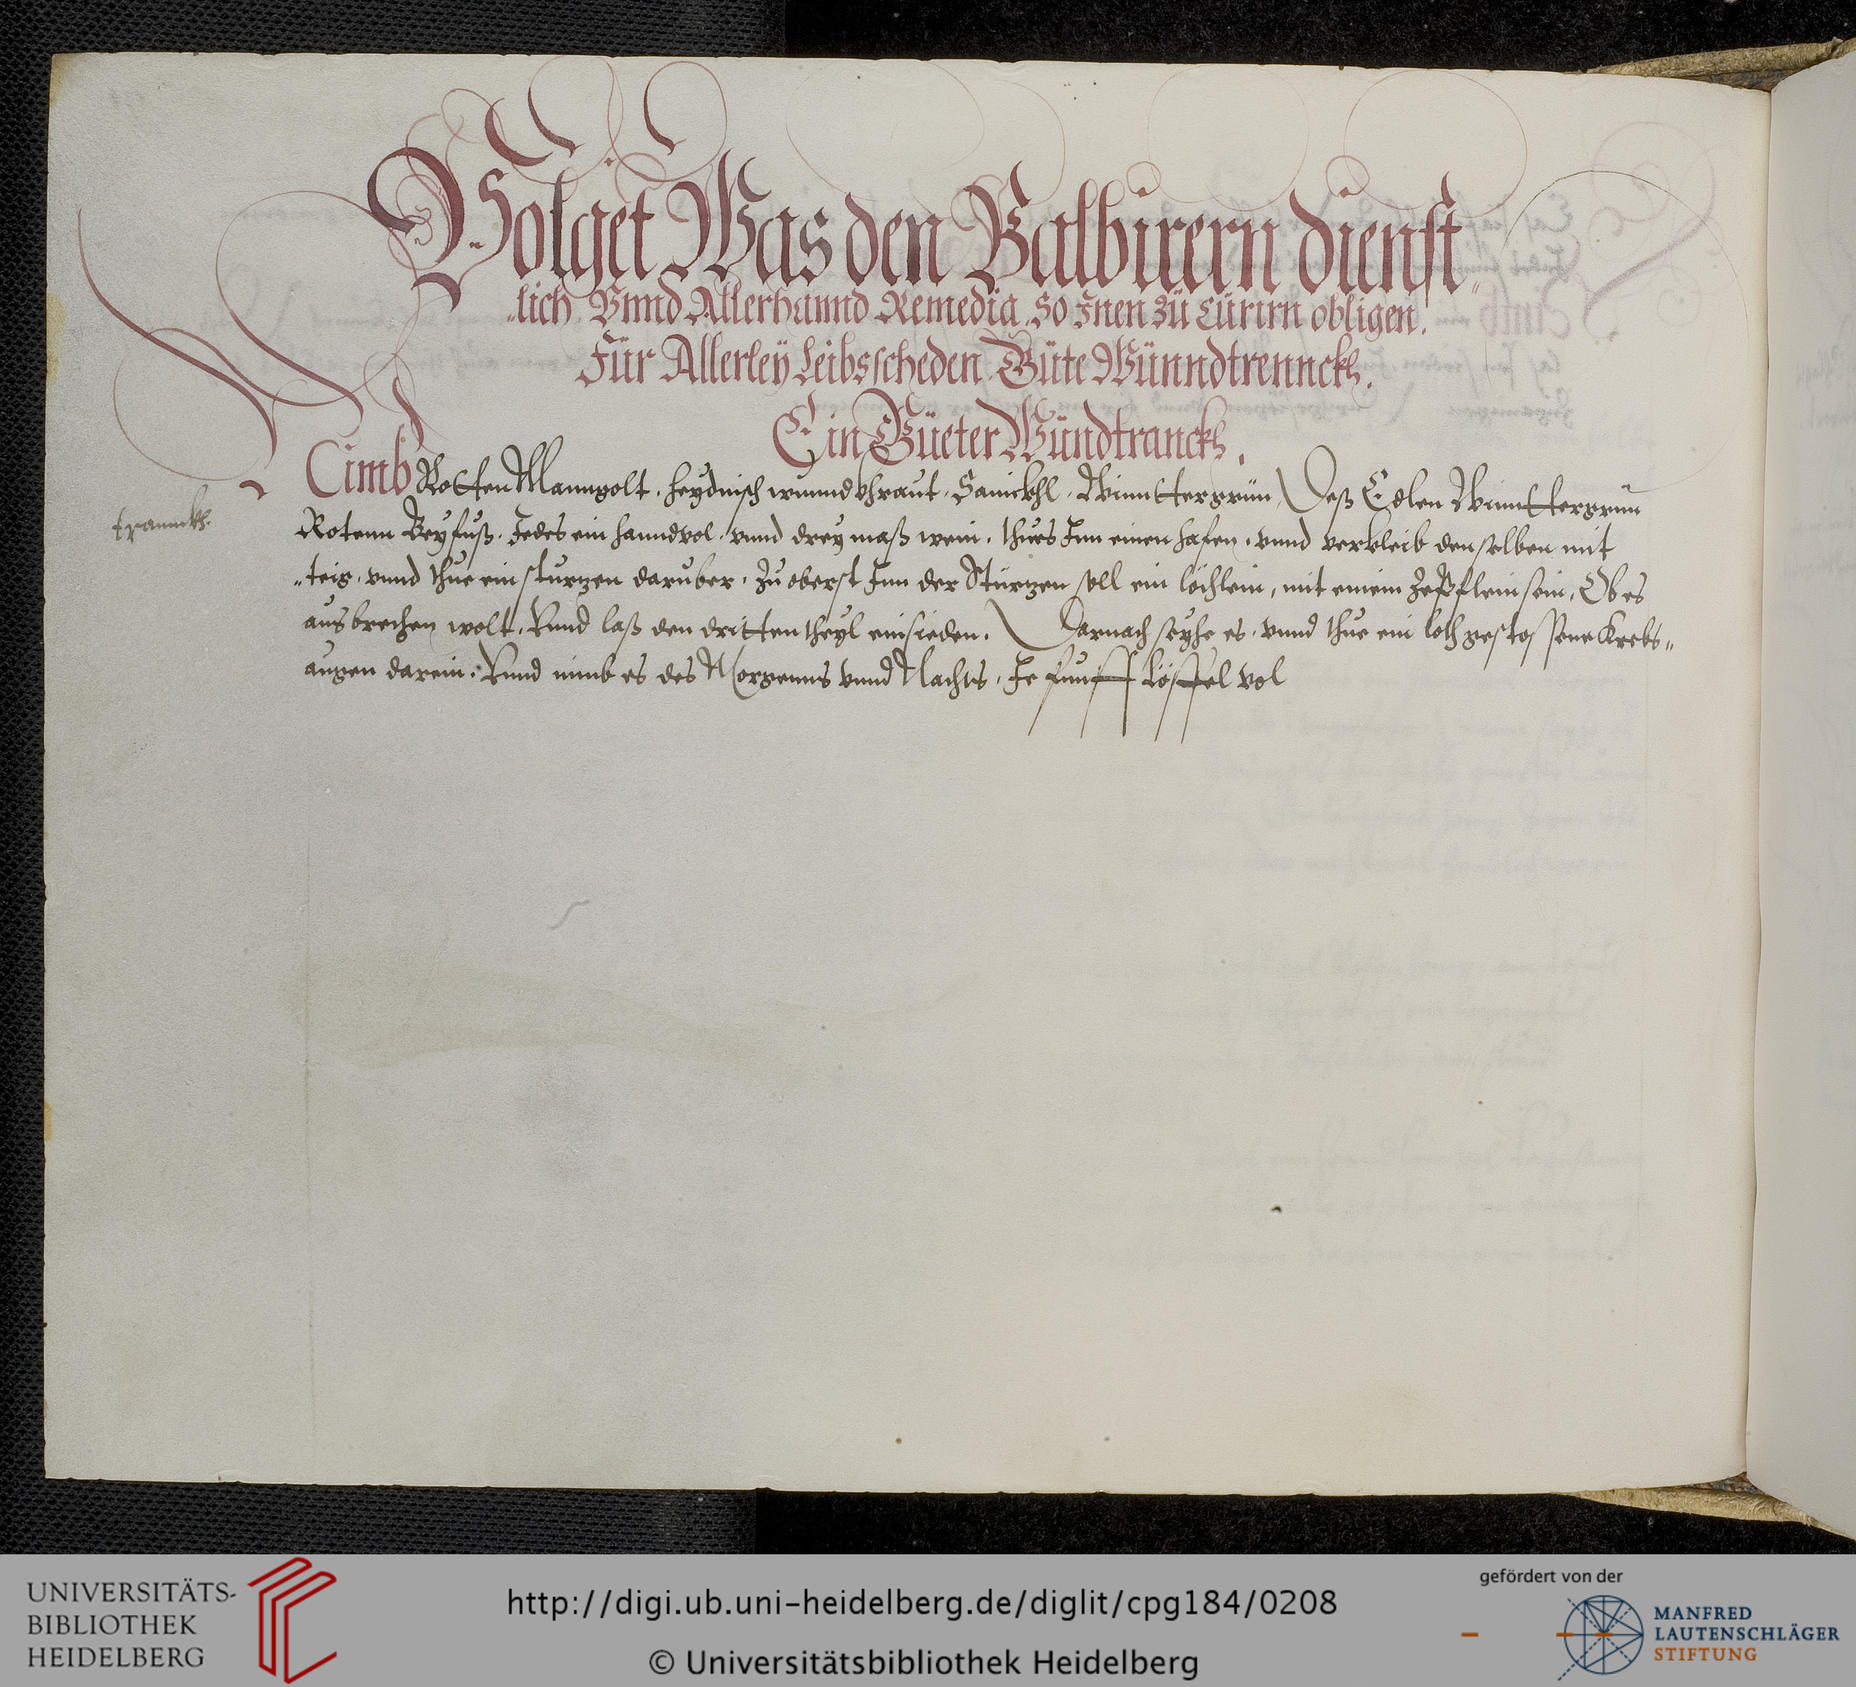 Volget Was den Balbirern dienst„
„lich Vnnd Allerhannd Remedia, So Inen zů Cůrirn obligen.
Für Allerley Leibsscheden Gůte Wůnndtrennckh.
Ein Gůeter Wůndtranckh.
Nimb Rotten Manngolt. heydnisch wunndkhraut. Sanickhl. Winttergrün. Deß Edlen Winttergrün
tranckh.
Rotenn Beyfuß. Jedes ein hanndvol. vnnd drey maß wein. thues Inn einen hafen. vnnd verkleib denselben mit
„teig. vnnd thue ein sturtzen daruber. Zu oberst Inn der Sturtzen soll ein lochlein, mit einem Zepfflein sein, Ob es
ausbrechen wolt. Vnnd laß den dritten theyl einsieden. Darnach seyhe es. vnnd thue ein loth gestossene Krebs„
augen darein. Vnnd nimb es des Morgenns vnnd Nachts. Je funff löffel vol
UNIVERSITÄTS-
BIBLIOTHEK
HEIDELBERG
http://digi.ub.uni-heidelberg.de/diglit/cpg184/0208
© Universitätsbibliothek Heidelberg
gefördert von der
MANFRED
LAUTENSCHLÄGER
STIFTUNG